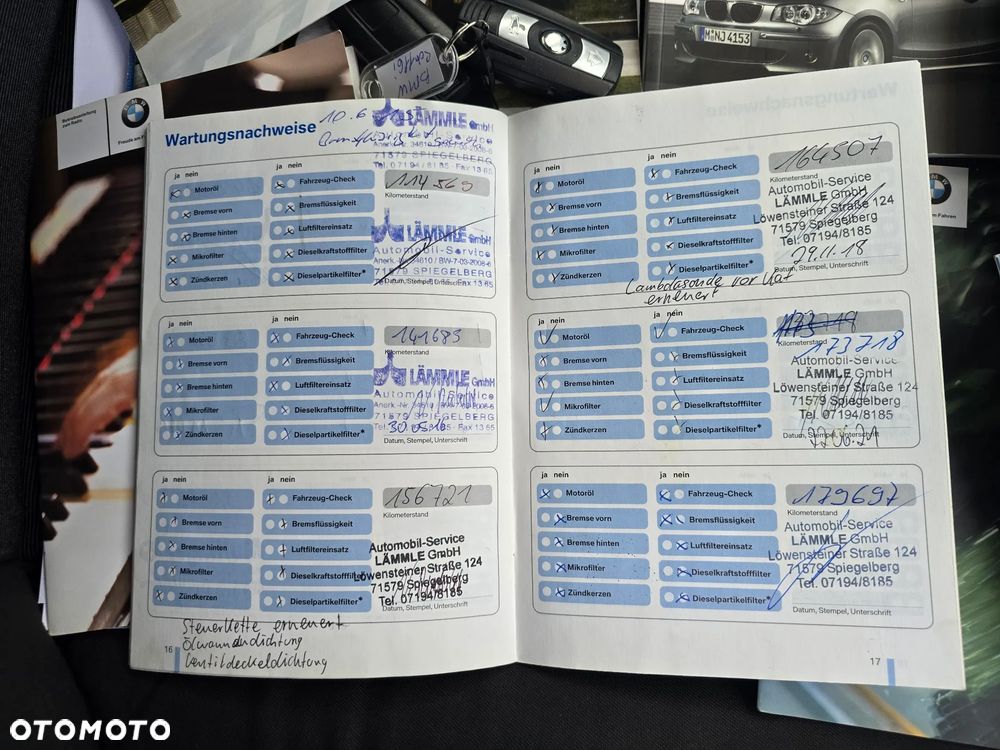 Betriebsanleitung
zum Radio.
BMW
M NJ 4153
Wartungsnachweise
10.6
LÄMMLE GmbH
71579 SPIEGELBERG
Tel. 07194/8185 Fax 13 65
ja nein
ja nein
Motoröl
Bremse vorn
Bremse hinten
Mikrofilter
Zündkerzen
Fahrzeug-Check
Bremsflüssigkeit
Luftfiltereinsatz
Dieselkraftstofffilter
Dieselpartikelfilter*
114569
Kilometerstand
LÄMMLE GmbH
Automobil-Service
71579 SPIEGELBERG
Datum, Stempel, Unterschrift
ja nein
ja nein
Motoröl
Bremse vorn
Bremse hinten
Mikrofilter
Zündkerzen
Fahrzeug-Check
Bremsflüssigkeit
Luftfiltereinsatz
Dieselkraftstofffilter
Dieselpartikelfilter*
141683
Kilometerstand
LÄMMLE GmbH
Automobil-Service
71579 SPIEGELBERG
30.05.16
Datum, Stempel, Unterschrift
ja nein
ja nein
Motoröl
Bremse vorn
Bremse hinten
Mikrofilter
Zündkerzen
Fahrzeug-Check
Bremsflüssigkeit
Luftfiltereinsatz
Dieselkraftstofffilter
Dieselpartikelfilter*
156721
Kilometerstand
Automobil-Service
LÄMMLE GmbH
Löwensteiner Straße 124
71579 Spiegelberg
Tel. 07194/8185
Datum, Stempel, Unterschrift
Steuerkette erneuert
Ölwannendichtung
Ventildeckeldichtung
16
ja nein
ja nein
Motoröl
Bremse vorn
Bremse hinten
Mikrofilter
Zündkerzen
Fahrzeug-Check
Bremsflüssigkeit
Luftfiltereinsatz
Dieselkraftstofffilter
Dieselpartikelfilter*
164507
Kilometerstand
Automobil-Service
LÄMMLE GmbH
Löwensteiner Straße 124
71579 Spiegelberg
Tel. 07194/8185
29.11.18
Datum, Stempel, Unterschrift
Lambdasonde vor Kat
erneuert
ja nein
ja nein
Motoröl
Bremse vorn
Bremse hinten
Mikrofilter
Zündkerzen
Fahrzeug-Check
Bremsflüssigkeit
Luftfiltereinsatz
Dieselkraftstofffilter
Dieselpartikelfilter*
Kilometerstand
173718
Automobil-Service
LÄMMLE GmbH
Löwensteiner Straße 124
71579 Spiegelberg
Tel. 07194/8185
Datum, Stempel, Unterschrift
22.06.21
ja nein
ja nein
Motoröl
Bremse vorn
Bremse hinten
Mikrofilter
Zündkerzen
Fahrzeug-Check
Bremsflüssigkeit
Luftfiltereinsatz
Dieselkraftstofffilter
Dieselpartikelfilter*
179697
Kilometerstand
Automobil-Service
LÄMMLE GmbH
Löwensteiner Straße 124
71579 Spiegelberg
Tel. 07194/8185
Datum, Stempel, Unterschrift
17
OTOMOTO